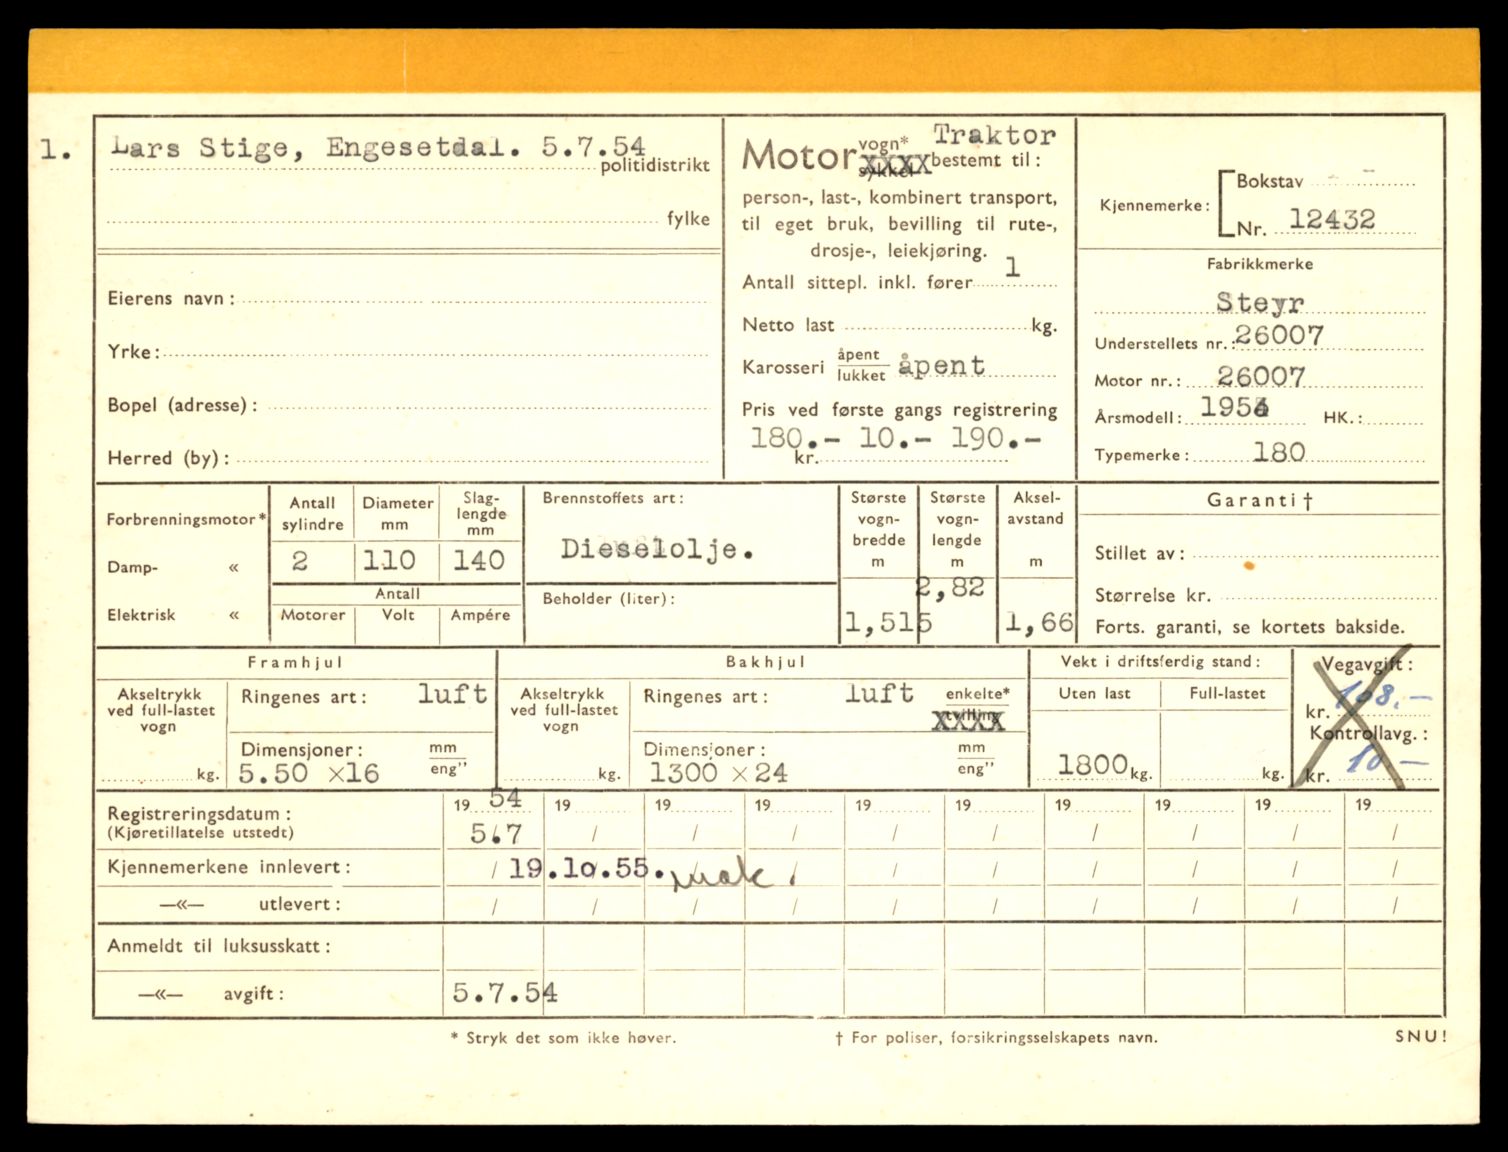 1. Lars Stige, Engesetdal. 5.7.54
politidistrikt
fylke
Eierens navn:
Yrke:
Bopel (adresse):
Herred (by):
Motor vogn* Traktor
sykkel bestemt til:
person-, last-, kombinert transport,
til eget bruk, bevilling til rute-,
drosje-, leiekjøring.
Antall sittepl. inkl. fører 1
Netto last kg.
Karosseri åpent lukket åpent
Pris ved første gangs registrering
180.- 10.- 190.-
kr.
Kjennemerke: Bokstav
Nr. 12432
Fabrikkmerke
Steyr
Understellets nr.: 26007
Motor nr.: 26007
Årsmodell: 1954 HK.:
Typemerke: 180
Forbrenningsmotor*
Damp- «
Elektrisk «
Antall sylindre
Diameter mm
Slag-lengde mm
2 110 140
Antall
Motorer Volt Ampére
Brennstoffets art:
Dieselolje.
Beholder (liter):
Største vogn-bredde m
1,515
Største vogn-lengde m
2,82
Aksel-avstand m
1,66
Garanti †
Stillet av:
Størrelse kr.
Forts. garanti, se kortets bakside.
Framhjul
Akseltrykk ved full-lastet vogn
kg.
Ringenes art: luft
Dimensjoner: mm eng”
5.50 x16
Bakhjul
Akseltrykk ved full-lastet vogn
kg.
Ringenes art: luft enkelte*
tvilling
Dimensjoner: mm eng”
1300 x 24
Vekt i driftsferdig stand:
Uten last Full-lastet
1800 kg. kg.
Vegavgift:
kr. 108.-
Kontrollavg.:
kr. 10 -
Registreringsdatum: 19 54 19 19 19 19 19 19 19 19 19
(Kjøretillatelse utstedt) 5.7 / / / / / / / / /
Kjennemerkene innlevert: / 19.10.55. mak. / / / / / /
—«— utlevert: / / / / / / / / / /
Anmeldt til luksusskatt:
—«— avgift: 5.7.54
* Stryk det som ikke høver. † For poliser, forsikringsselskapets navn. SNU!